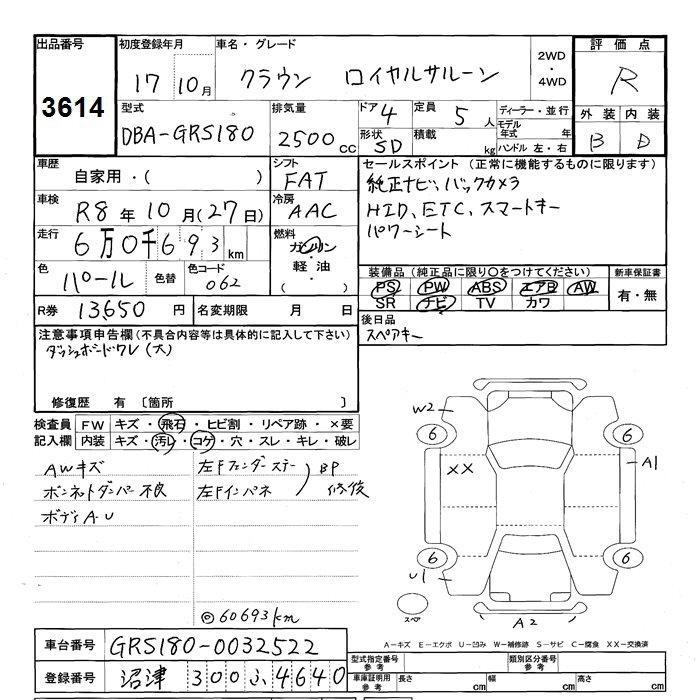 出品番号
3614
初度登録年月
17 10月
車名・グレード
クラウン ロイヤルサルーン
2WD
・
4WD
評価点
R
外装 内装
B D
型式
DBA-GRS180
排気量
2500cc
ドア 4
形状 SD
定員 5人
積載 kg
ディーラー・並行
モデル年式 年
ハンドル 左・右
車歴
自家用・( )
シフト
FAT
セールスポイント (正常に機能するものに限ります)
純正ナビ、バックカメラ
HID、ETC、スマートキー
パワーシート
車検
R8年10月(27日)
冷房
AAC
走行
6万0千693km
燃料
ガソリン
・
軽油
( )
色
パール
色替
色コード
062
装備品 (純正品に限り○をつけてください)
PS PW ABS エアB AW
SR ナビ TV カワ
新車保証書
有・無
R券 13,650円
名変期限 月 日
後日品
スペアキー
注意事項申告欄(不具合内容等は具体的に記入して下さい)
ダッシュボードワレ(大)
修復歴 有 〔箇所 〕
検査員記入欄
FW キズ・飛石・ヒビ割・リペア跡・×要
内装 キズ・汚レ・コゲ・穴・スレ・キレ・破レ
AWキズ
ボンネットダンパー不良
ボディA.U
左Fフェンダーステー
左Fインパネ
BP
修復
©60693km
W2
6
6
XX
A1
6
6
U1
スペア
A2
A-キズ E-エクボ U-凹み W-補修跡 S-サビ C-腐食 XX-交換済
車台番号 GRS180-0032522
登録番号 沼津 300 ふ 4640
型式指定番号
参考
類別区分番号
参考
車庫証明用
参考
長さ cm
幅 cm
高さ cm